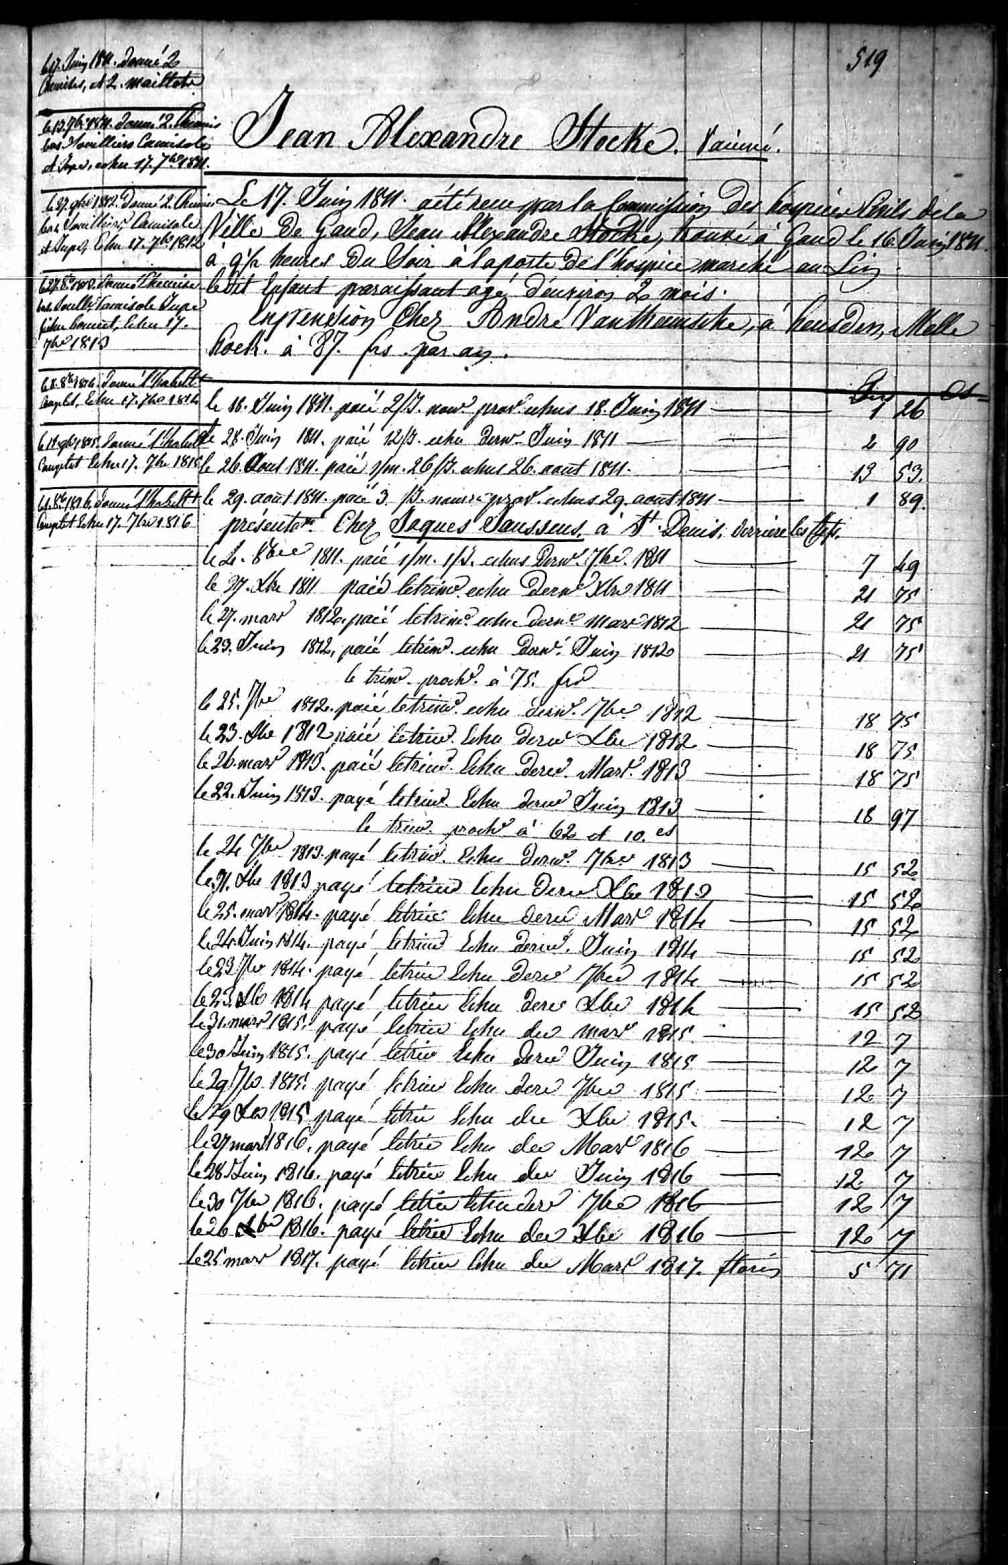 519
le 17. Juin 1811. donné 2
Chemises, et 2. maillots
le 13. 9bre 1811. donné 2. Chemis
bas Souilliers Camisole
et Jupe, echu 17. 7bre 1811.
le 27. 9bre 1812. donné 2. Chemises
bas Souilliers, Camisole
et Jupe, Echu 17. 7bre 1812
donné Chemise
bas Souill. Camisole Jupe
fichu bonnet, Echu 17.
7bre 1813
donné 1. habillt
Complet, Echu 17. 7bre 1814
donné 1. habillt
Complet Echu 17. 7bre 1815
donné 1. habillt
Complet Echu 17. 7bre 1816
Jean Alexandre Stocke. Vaciné.
Le 17. Juin 1811. a été recu par la Commission des hospices Civils de la
Ville De Gand, Jean Alexandre Stocke, trouvé à Gand le 16 Juin 1811
à 9½ heures du Soir à la porte de l'hospice marché au Lin.
le dit Enfant paraissant agé d'environ 2 mois.
En pension Chez André à heusden, Melle
hoek. à 87. frs. par an.
le 18. Juin 1811. paié 2/3. nour. prov. echus 18. Juin 1811 1 26
le 28. Juin 1811. paié 12/3. echu dern. Juin 1811 2 90
le 26. Aout 1811. paié 1/m. 26/3. echus 26. aout 1811. 13 53.
le 29. aout 1811. paié 3. /3. nourr. prov. echus 29. aout 1811 1 89
présentemt. Chez Jaques Janssens, à St Denis, derrière les
le 2. 8bre 1811. paié 1/m. 1/3. echus dern. 7bre. 1811 7 49
le 27. Xbre 1811 paié le trim. echu dern. Xbre 1811 21 75
le 27. mars 1812. paié le trim. echu dern. mars 1812 21 75
le 23. Juin 1812, paié le trim. echu dern. Juin 1812 21 75
le trim. proch. à 75. frs
le 25. 7bre 1812. paié le trim. echu dern. 7bre 1812 18 75
le 23. Xbre 1812 paié le trim. Echu dern. Xbre 1812 18 75
le 26 mars 1813. paié le trim. Echu dern. Mars 1813 18 75
le 22. Juin 1813. payé le trim. Echu dern. Juin 1813 18 97
le trim. proch. à 62 et 10. cs
le 24 7bre 1813. payé le trim. Echu dern. 7bre 1813 15 52
le 31. Xbre 1813 payé le trim Echu dern Xbre 1813 15 52
le 25. mars 1814. payé le trim Echu dern Mars 1814 15 52
le 24 Juin 1814. payé le trim Echu dern. Juin 1814 15 52
le 23 7bre 1814. payé le trim Echu dern 7bre 1814 15 52
le 23 Xbre 1814 payé le trim Echu dern Xbre 1814 15 52
le 31. mars 1815. payé le trim Echu der mars 1815. 12 7
le 30 Juin 1815. payé le trim Echu dern Juin 1815 12 7
le 29 7bre 1815. payé le trim Echu dern 7bre 1815 12 7
le 29 Xbre 1815 payé le trim Echu der Xbre 1815. 12 7
le 27 mars 1816. payé le trim Echu der Mars 1816 12 7
le 28 Juin 1816. payé le trim Echu der Juin 1816 12 7
le 30 7bre 1816. payé le trim Echu der 7bre 1816 12 7
le 26 Xbre 1816. payé le trim Echu der Xbre 1816 12 7
le 25 mars 1817. payé le trim Echu der Mars 1817. florins 5 71